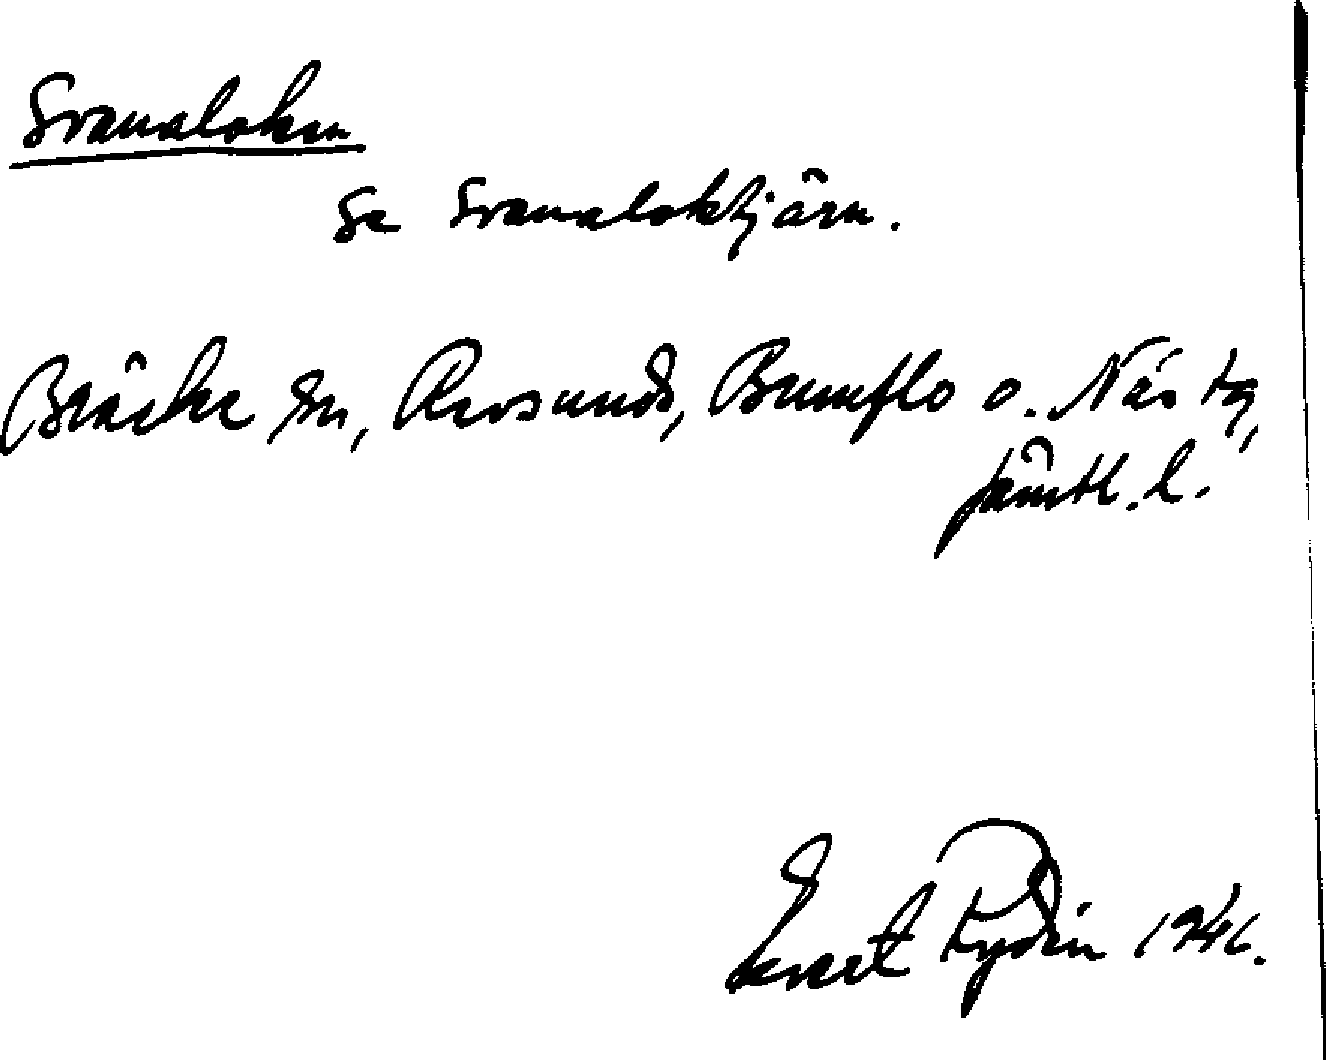 Svanaloken
Se Svanaloktjärn.
Bräcke sn, Revsunds, Brunflo o. Näs tg,
Jämtl. l.
Evert Rydin 1946.